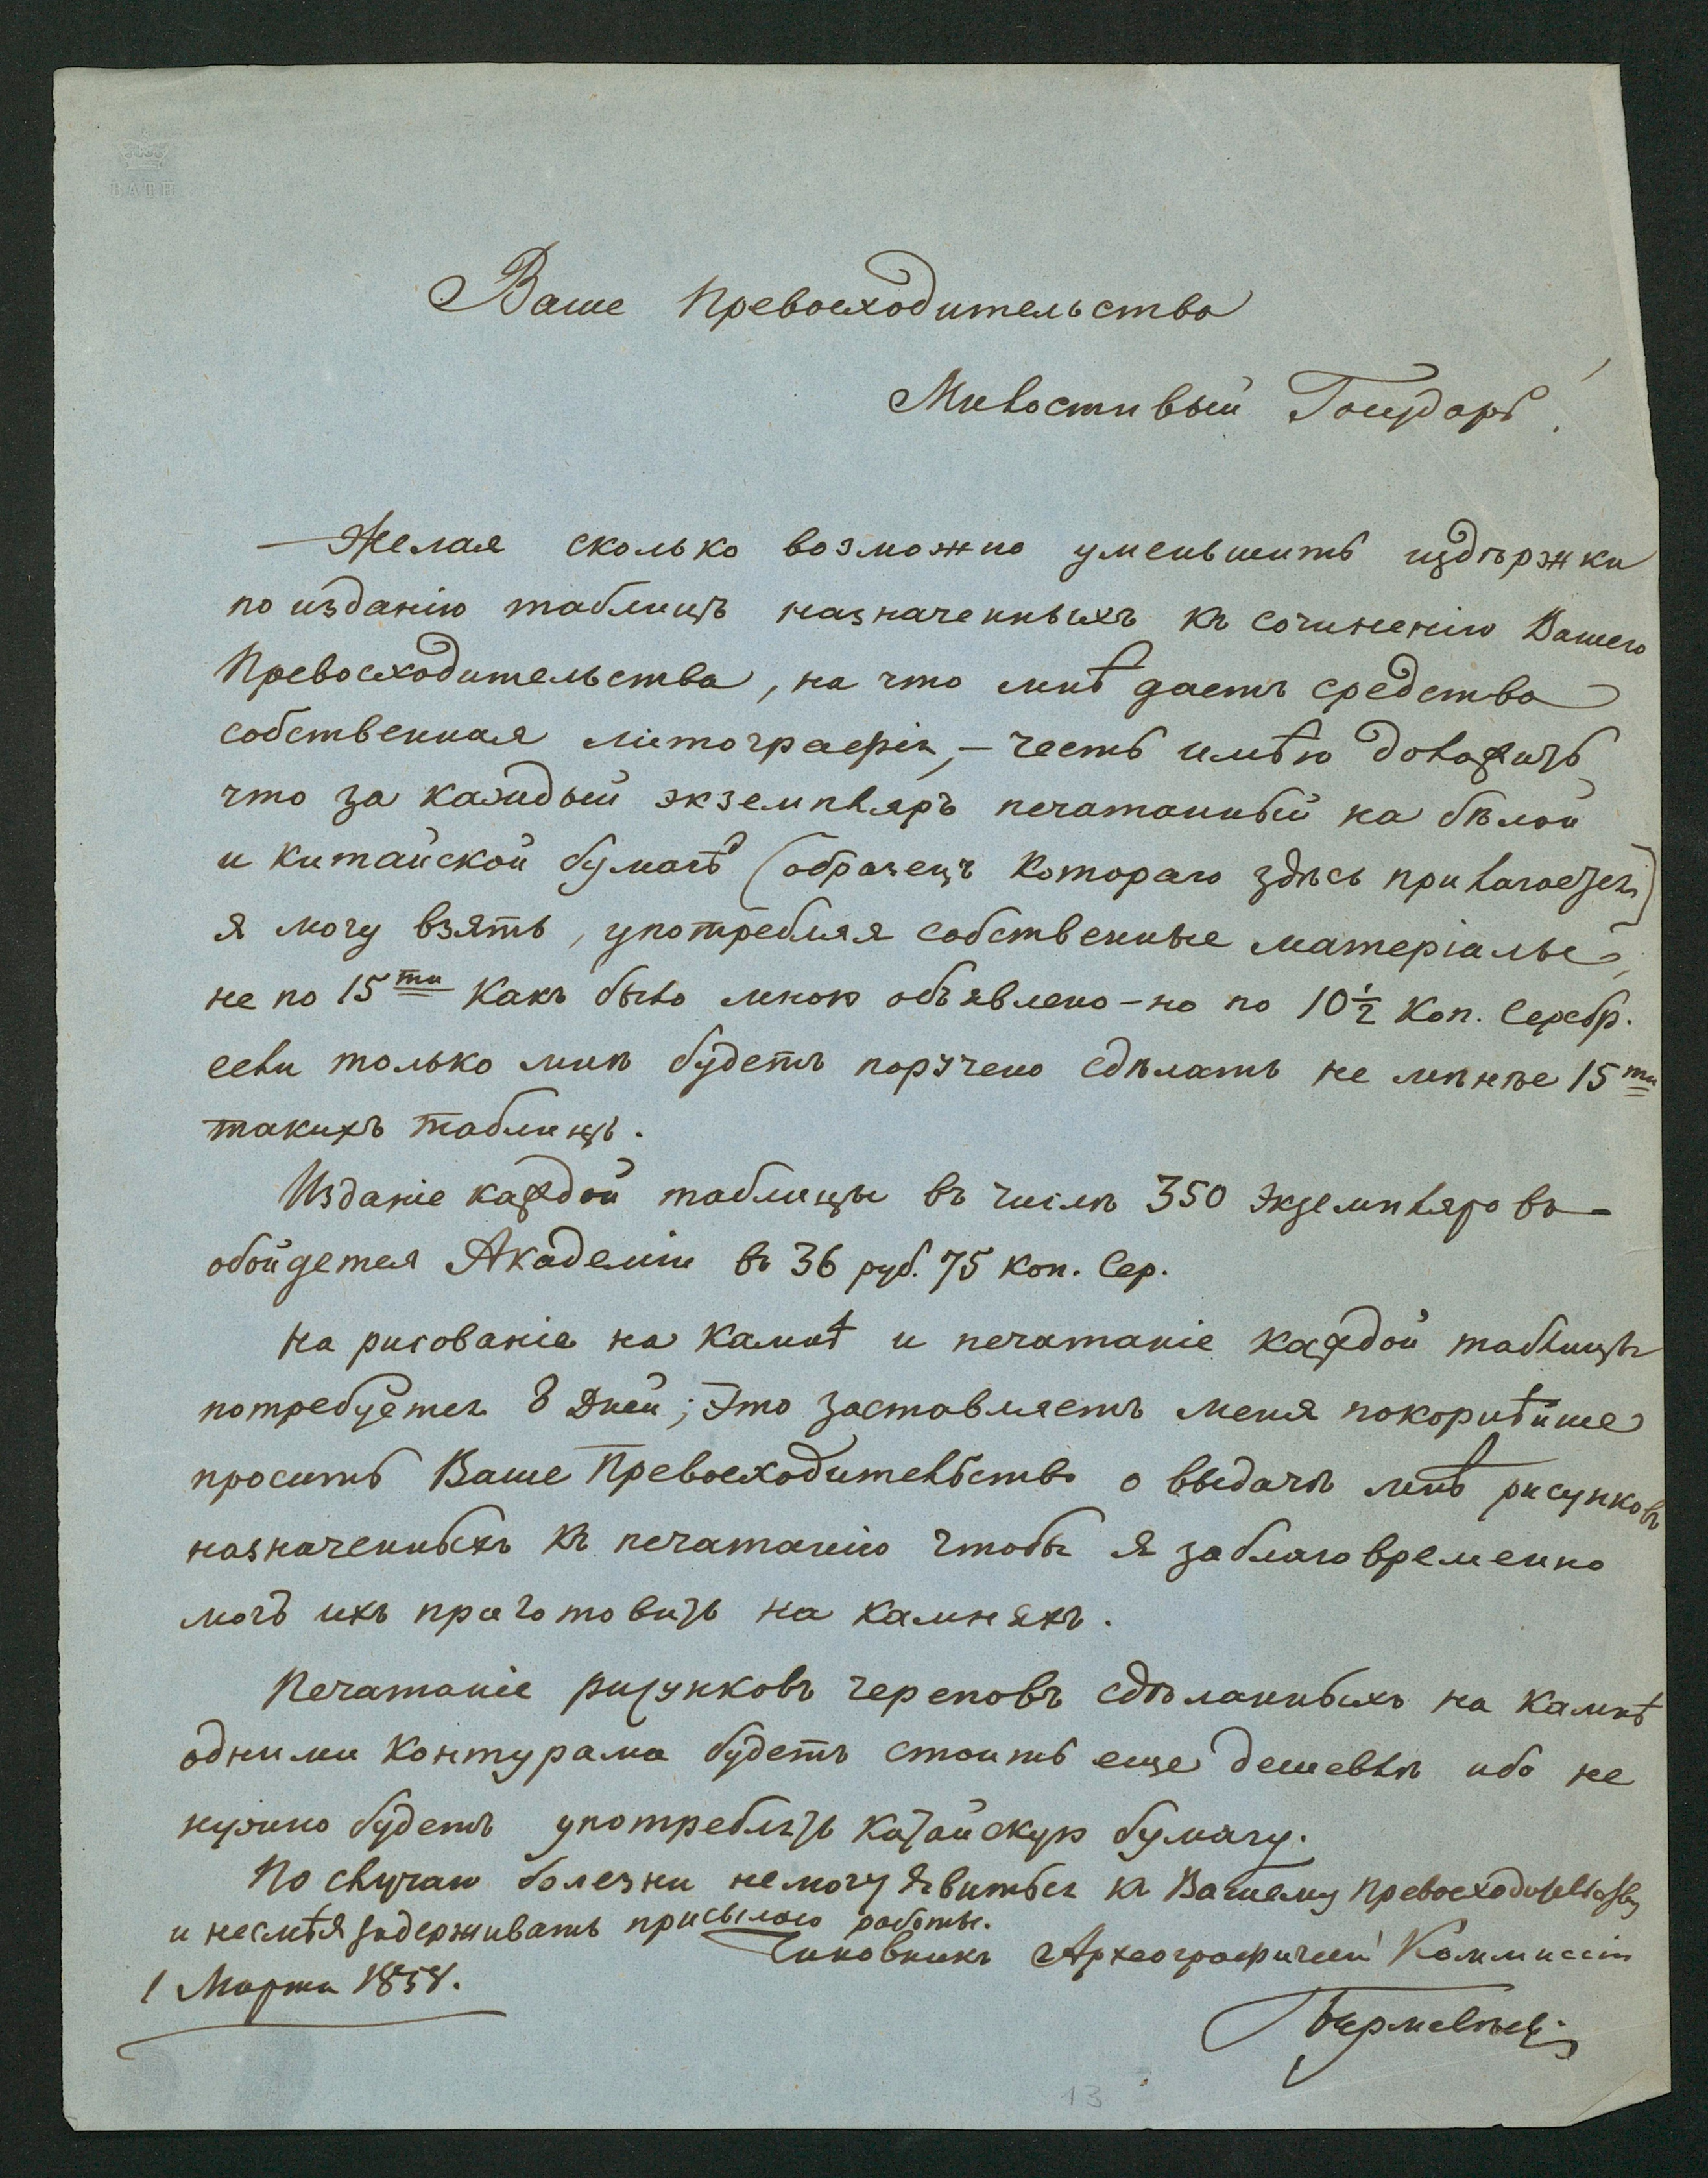 Ваше Превосходительство
Милостивый Государь!
Желая сколько возможно уменьшить издѣржки
по изданію таблицъ назначенныхъ къ сочиненію Вашего
Превосходительства, на что мнѣ даетъ средства
собственная литографія, — честь имѣю доложить
что за каждый экземпляръ печатанный на бѣлой
и китайской бумагѣ (образецъ котораго здѣсь прилагаезся)
я могу взять, употребляя собственные матеріалы,
не по 15ти какъ было мною объявлено — но по 10½ коп. серебр.
если только мнѣ будетъ поручено сдѣлать не мѣнѣе 15ти
такихъ таблицъ.
Изданіе каждой таблицы въ числѣ 350 экземпляровъ —
обойдется Академіи въ 36 руб. 75 коп. сер.
На рисованіе на камнѣ и печатаніе каждой таблицы
потребуется 8 дней; это заставляетъ меня покорнѣйше
просить Ваше Превосходительство о выдачѣ мнѣ рисунковъ
назначенныхъ къ печатанію чтобы я заблаговременно
могъ ихъ приготовить на камняхъ.
Печатаніе рисунковъ череповъ сдѣланныхъ на камнѣ
одними контурами будетъ стоить еще дешевлѣ ибо не
нужно будетъ употреблять китайскую бумагу.
По случаю болезни немогу явиться къ Вашему Превосходительству
и несмѣя задерживать присылаю работы.
Чиновникъ Археографичей Коммиссіи
1 Марта 1858.
13